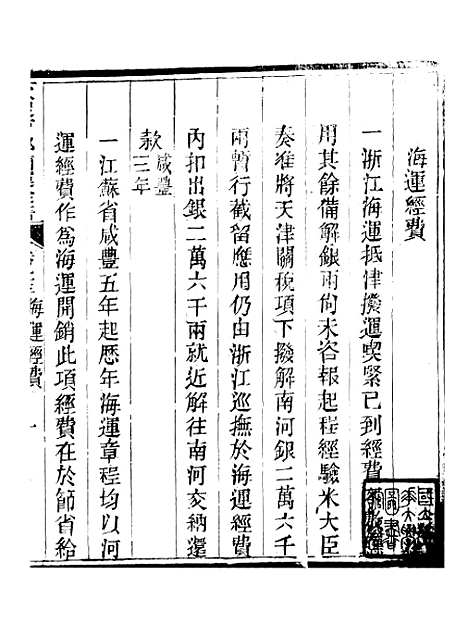 海運經費
一浙江海運抵津撥運喫緊已到經費
用其餘備解銀兩尙未咨報起程經驗米大臣
奏准將天津關稅項下撥解南河銀二萬六千
兩暫行截留應用仍由浙江巡撫於海運經費
內扣出銀二萬六千兩就近解往南河交納還
款咸豐三年
一江蘇省咸豐五年起歷年海運章程均以河
運經費作為海運開銷此項經費在於節省給
海運經費 一